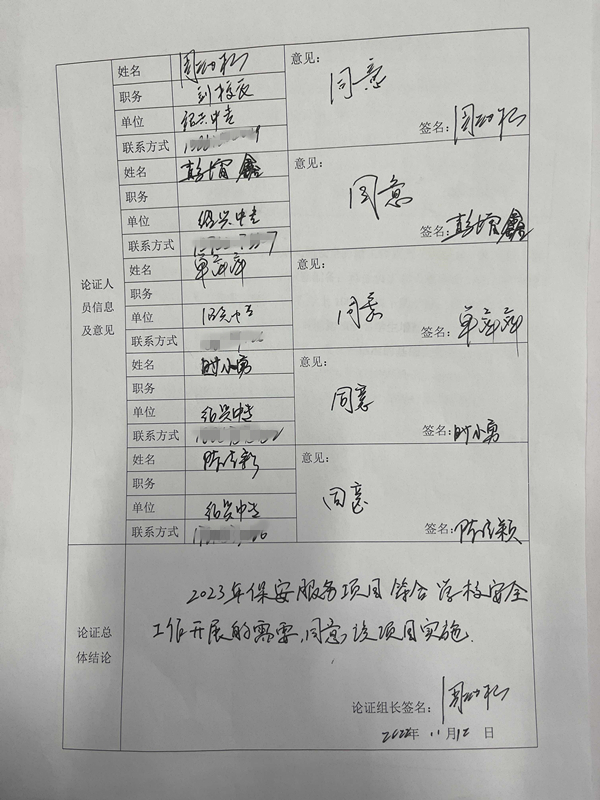 论证人
员信息
及意见
姓名
职务 副校长
单位 绍兴中专
联系方式
意见:
同意
签名:
姓名
职务
单位 绍兴中专
联系方式
意见:
同意
签名:
姓名
职务
单位 绍兴中专
联系方式
意见:
同意
签名:
姓名 时小勇
职务
单位 绍兴中专
联系方式
意见:
同意
签名: 时小勇
姓名
职务
单位 绍兴中专
联系方式
意见:
同意
签名:
论证总
体结论
2023年保安服务项目符合学校安全
工作开展的需要,同意该项目实施.
论证组长签名:
2022年 11月12日